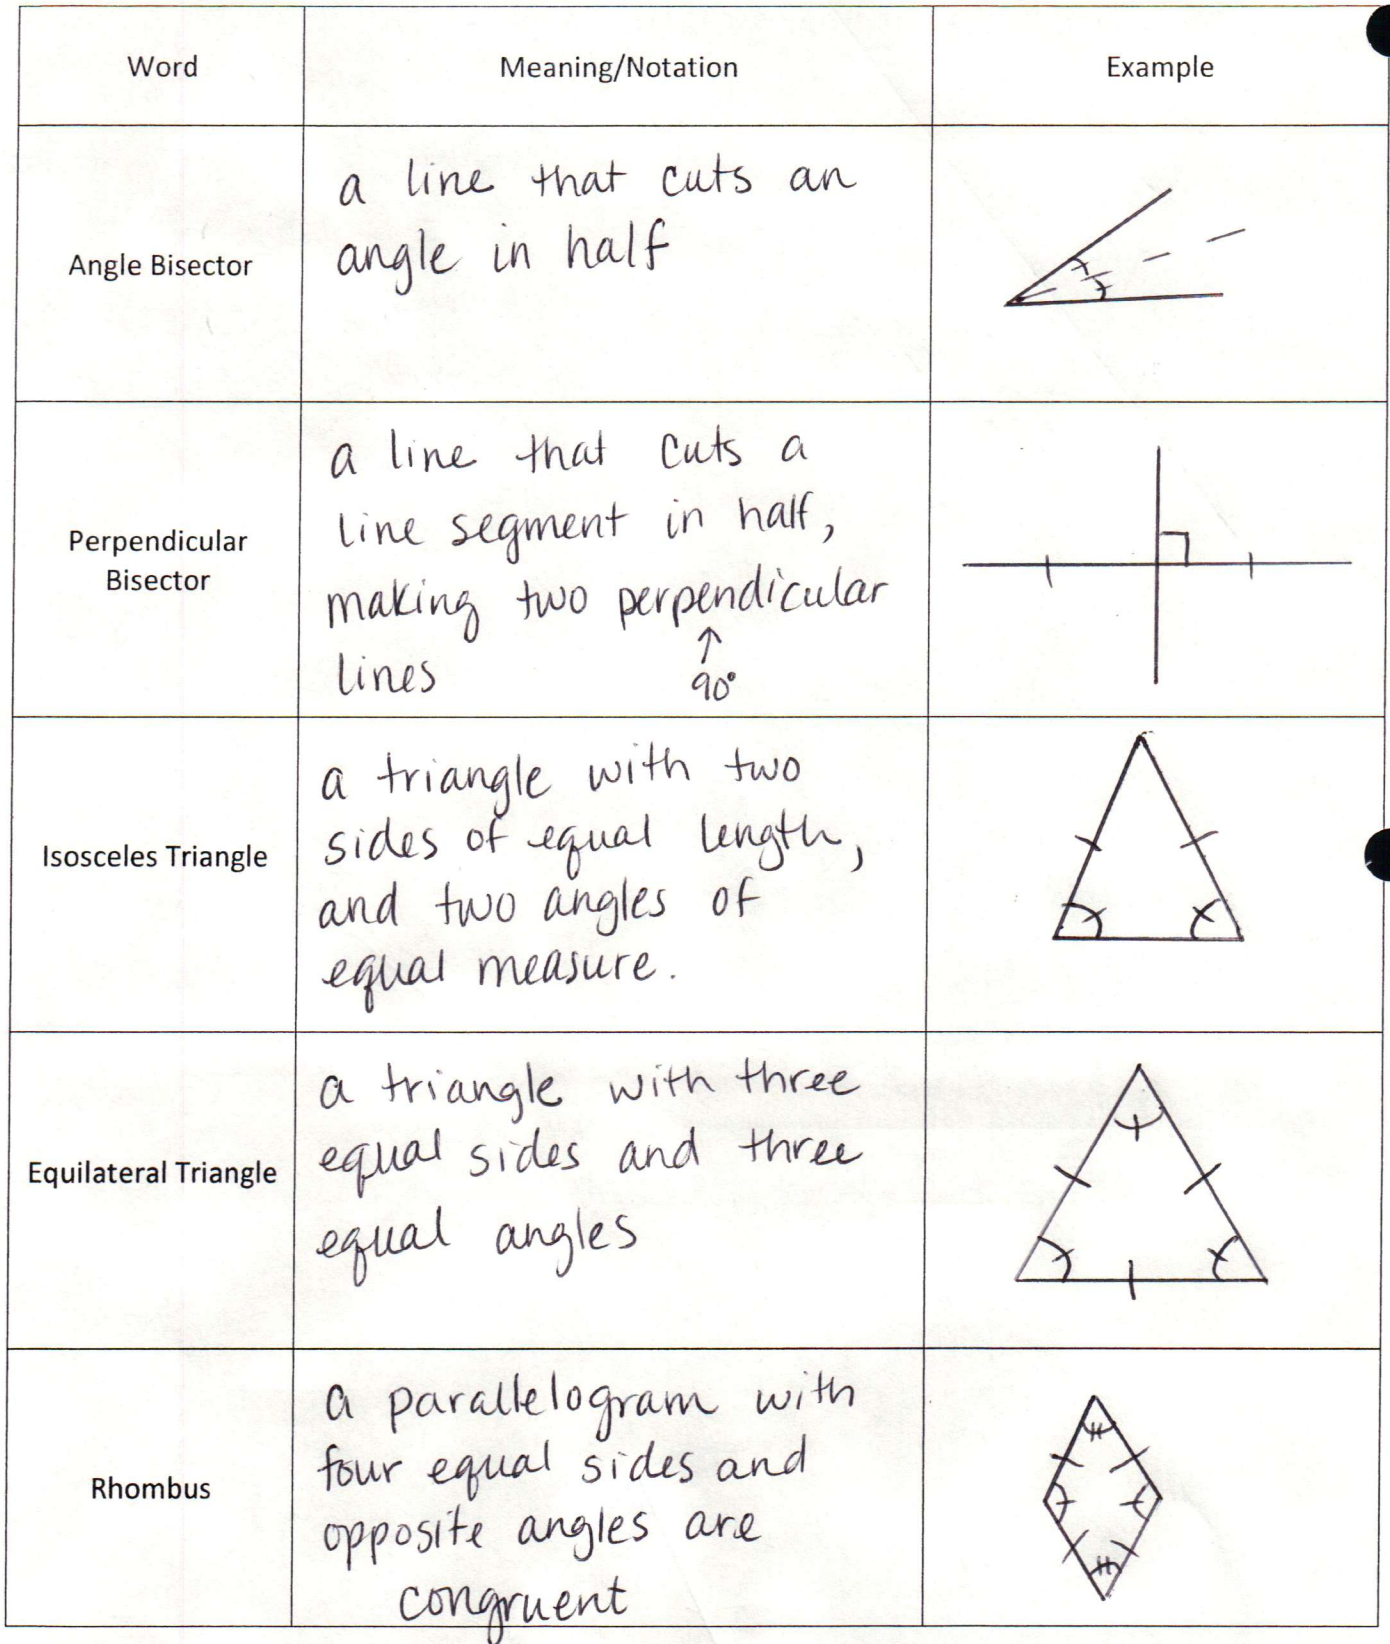 Word
Meaning/Notation
Example
Angle Bisector
a line that cuts an
angle in half
Perpendicular
Bisector
a line that cuts a
line segment in half,
making two perpendicular
↑
lines 90°
Isosceles Triangle
a triangle with two
sides of equal length,
and two angles of
equal measure.
Equilateral Triangle
a triangle with three
equal sides and three
equal angles
Rhombus
a parallelogram with
four equal sides and
opposite angles are
congruent